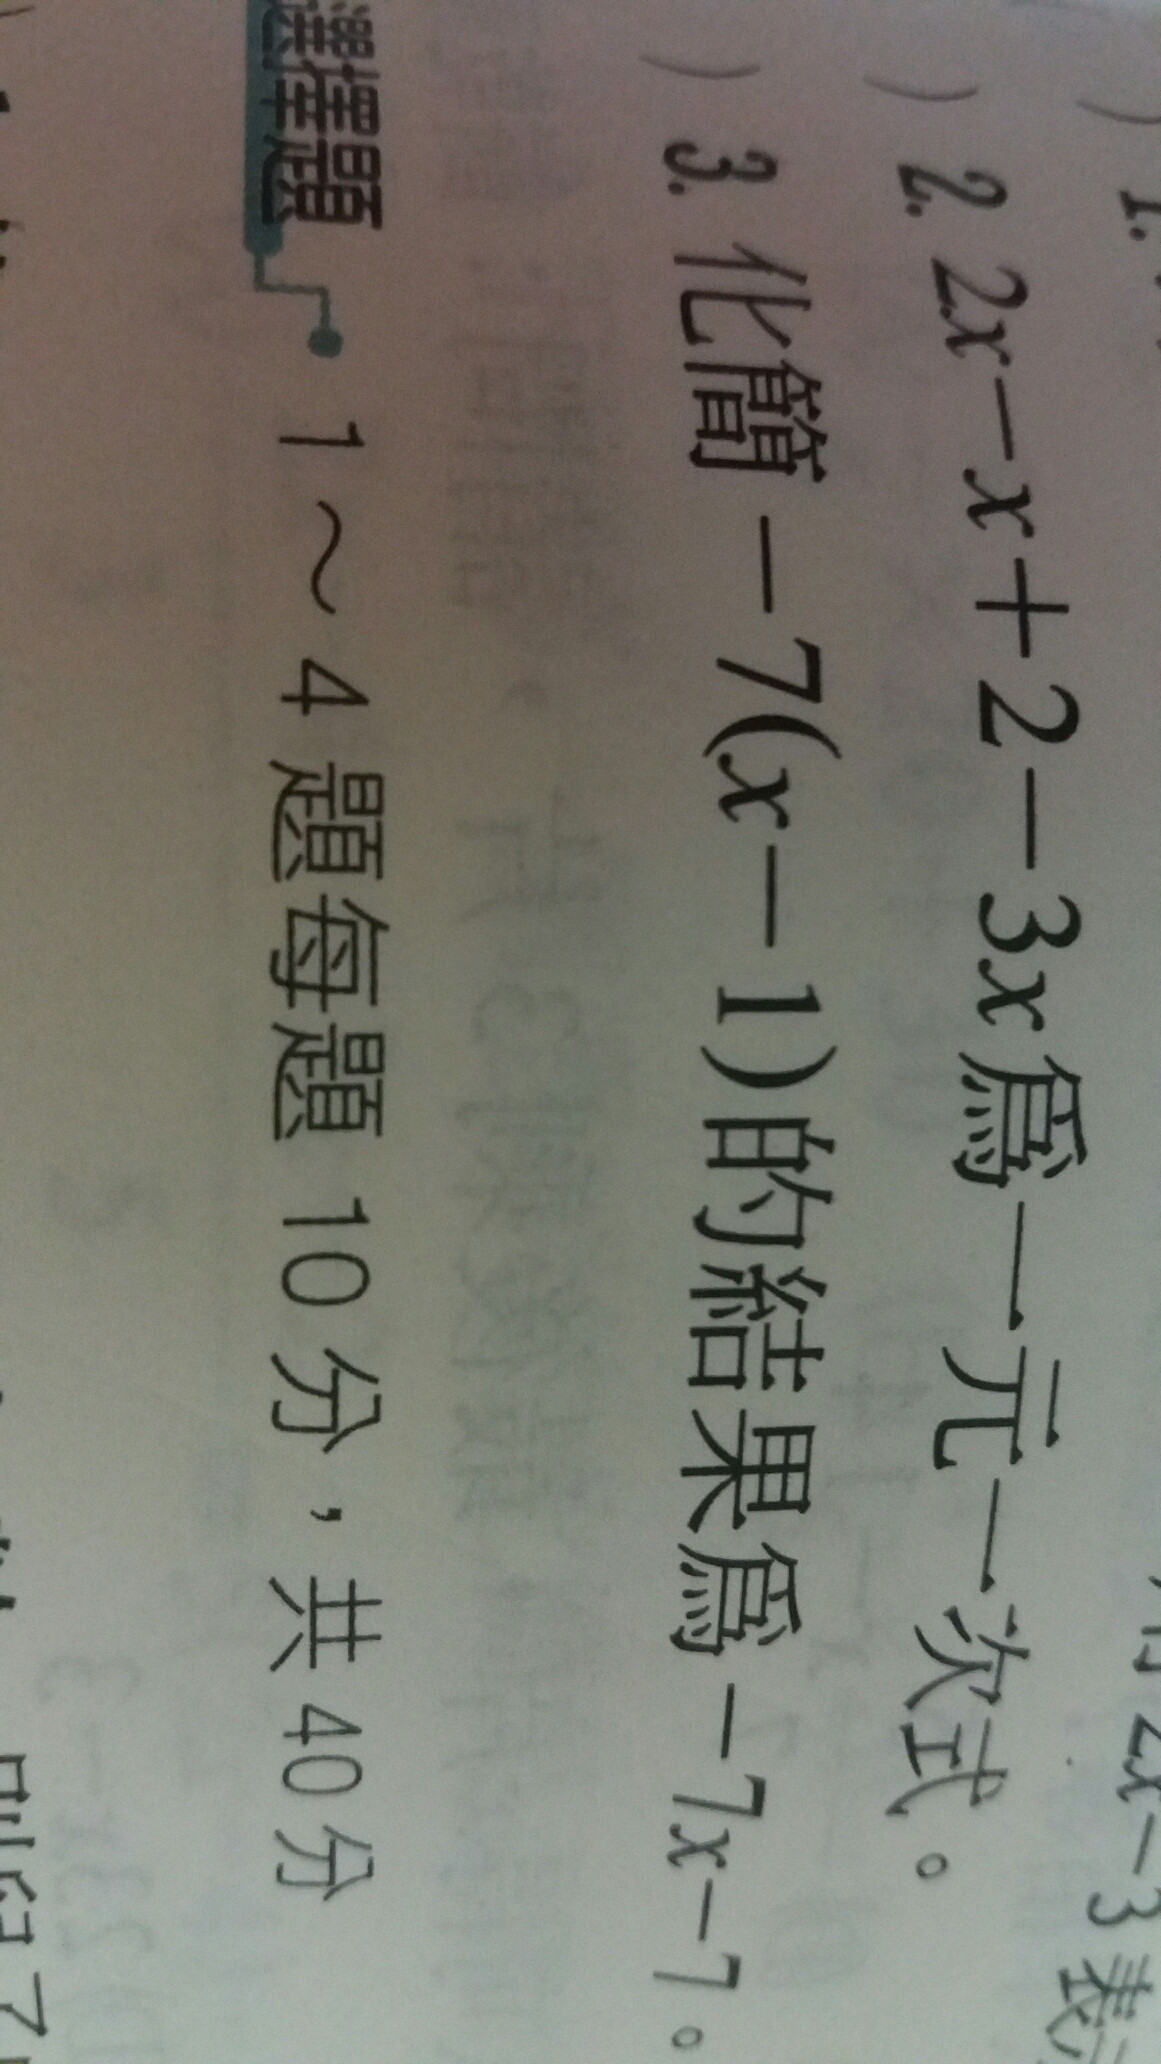 ) 1.
2x-3表
) 2. 2x-x+2-3x為一元一次式。
) 3. 化簡-7(x-1)的結果為-7x-7。
選擇題 1～4題每題10分，共40分